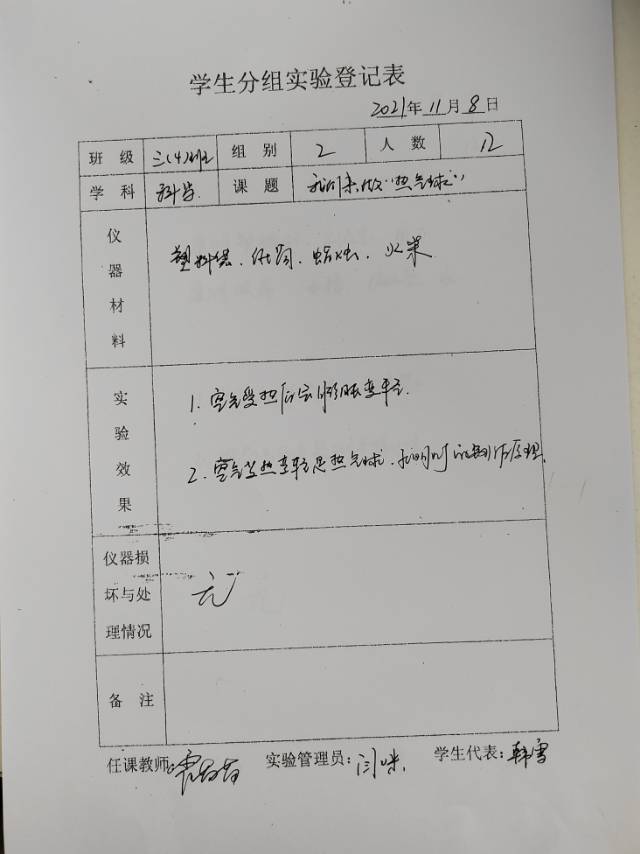 学生分组实验登记表
2021年11月8日
班级 三(4)班 组别 2 人数 12
学科 科学 课题 我们来做"热气球"
仪器材料 塑料袋、纸筒、蜡烛、火柴
实验效果 1. 空气受热后会膨胀变轻.
2. 空气受热变轻是热气球、孔明灯的制作原理.
仪器损坏与处理情况 无
备注
任课教师: 实验管理员: 闫 学生代表: 韩雪